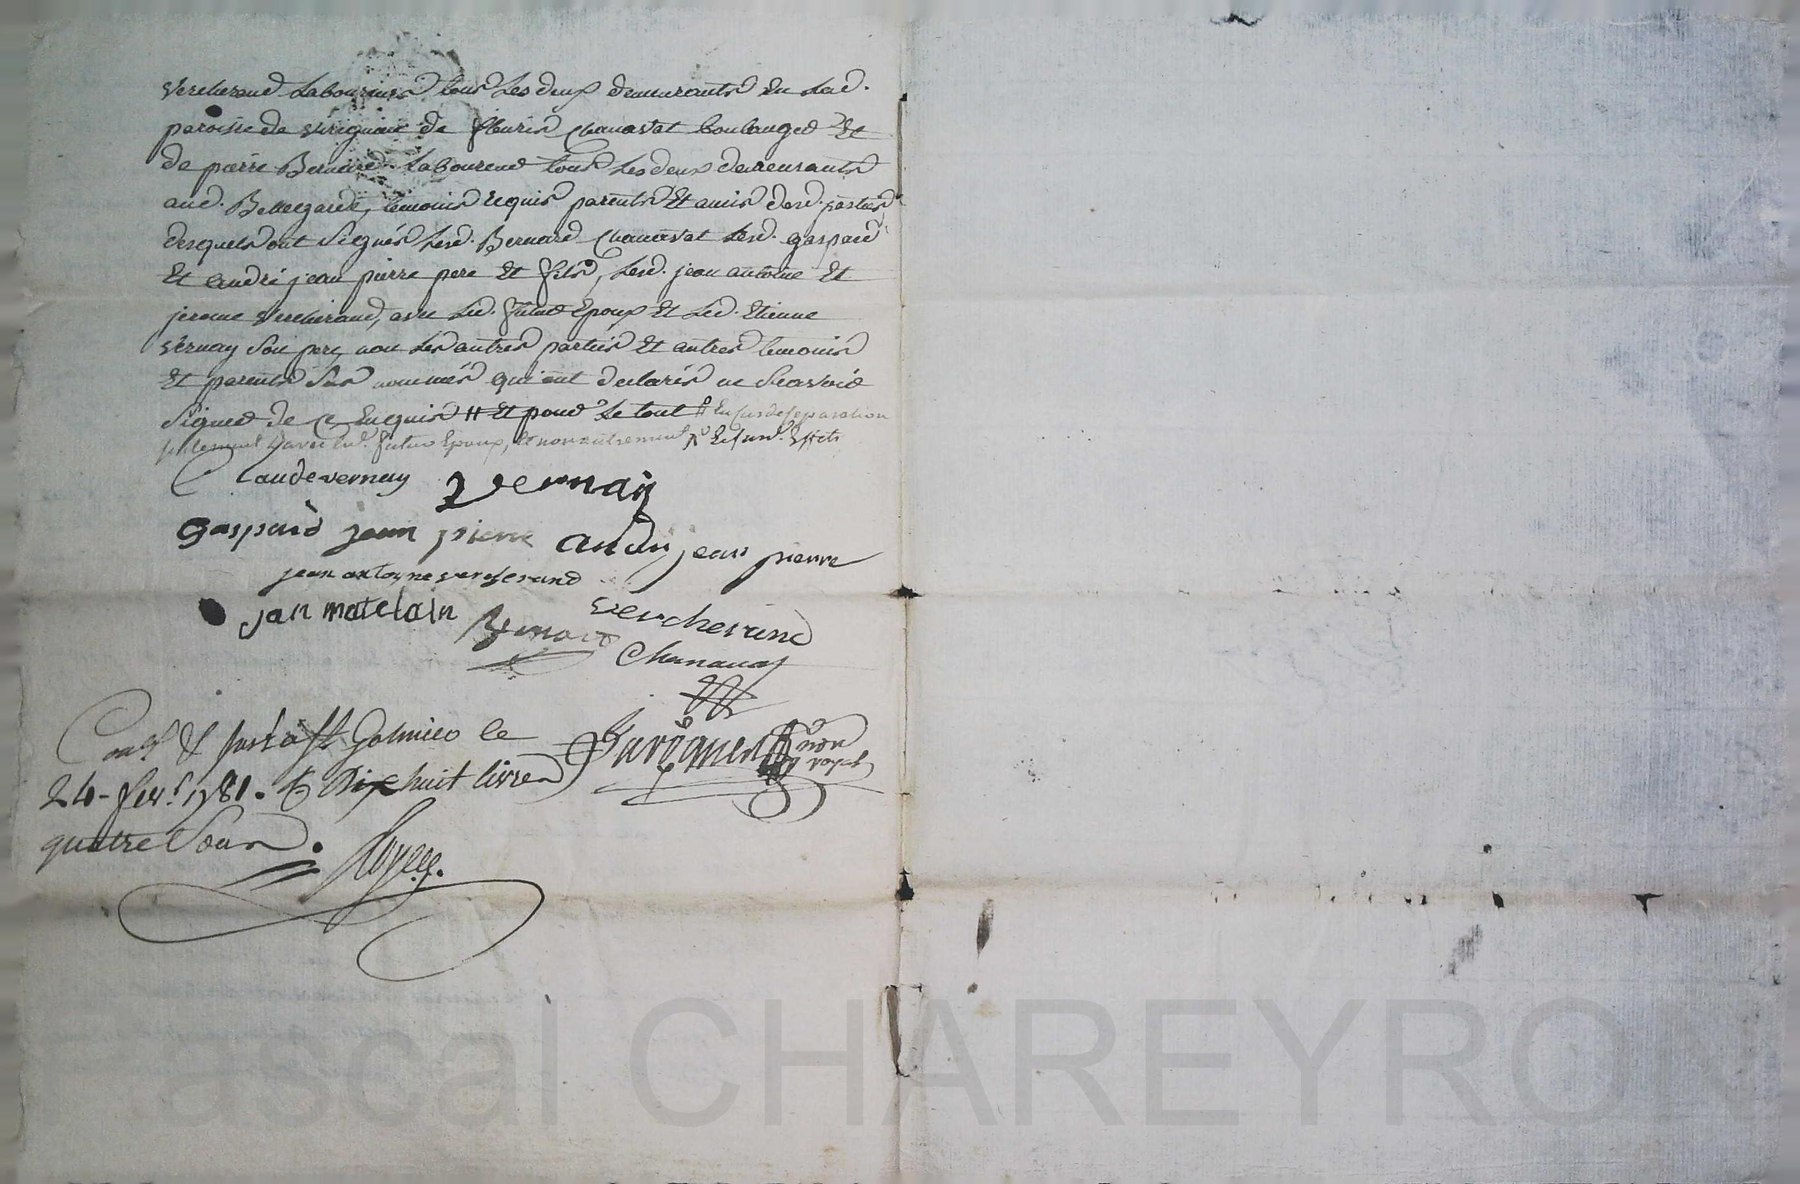 Vercherand Laboureur tous Les deux demeurants En Lad.
paroisse de de fleuris Chanavat boulanger Et
de pierre Bernard Laboureur tous Les deux demeurants
aud. Bellegarde, temoins requis parents Et amis desd. parties
desquels ont Signés Lesd. Bernard Chanavat Lesd. gaspard
Et andré jean pierre pere Et fils, Lesd. jean antoine Et
jerome Vercherand, avec Led. futur Epoux Et Led. Etienne
Vernay Son pere, non Les autres parties Et autres temoins
Et parents Sus nommés qui ont declarés ne Scavoir
Signer de ce Enquis Et pour Le tout En cas de separation
seulement avec futur Epoux, Et non autrement
Claude vernay Vernay
Gaspard jean pierre andry jean pierre
jean antoyne vercherand
jan matelain Bernard vercherand
Chanavat
Con.lé & à St Galmier le
24 fev. 1781. R Dix huit livres
quatre Sous.
royal